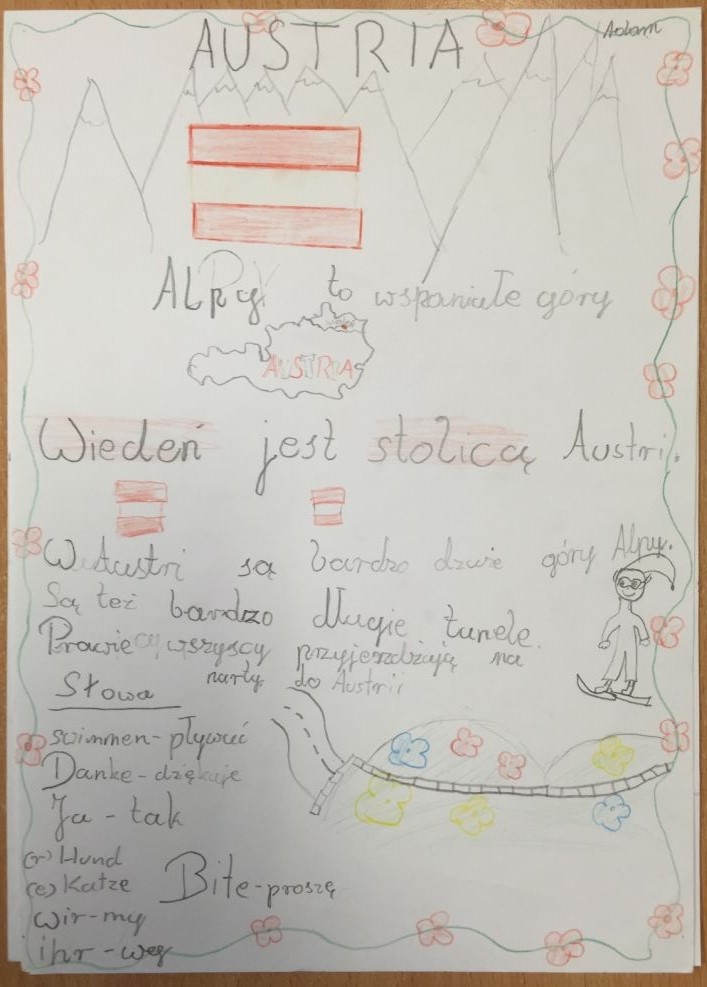 AUSTRIA
Adam
ALpy to wspaniałe góry
AUSTRIA
Wiedeń jest stolicą Austri.
W Austri są bardzo duże góry Alpy.
Są też bardzo długie tunele.
Prawie wszyscy przyjerzdzają na
narty do Austrii
Słowa
swimmen - pływać
Danke - dziękuje
Ja - tak
(r) Hund
(e) Katze
Bite - proszę
wir - my
ihr - wy